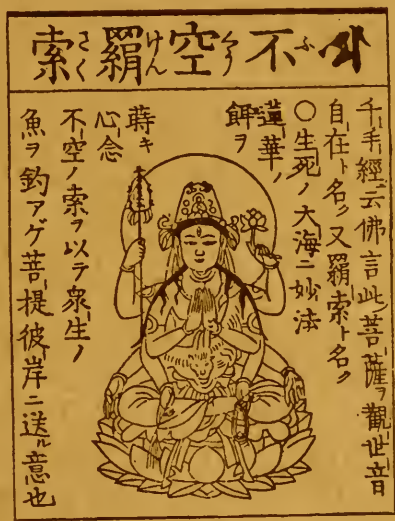 不空羂索
ふくうけんさく
千手經ニ云佛言此ノ菩薩ヲ觀世音
自在ト名ク又羂索ト名ク
○生死ノ大海ニ妙法
蓮華ノ
餌ヲ
蒔キ
心念
不空ノ索ヲ以テ衆生ノ
魚ヲ釣アゲ菩提彼岸ニ送ル意也